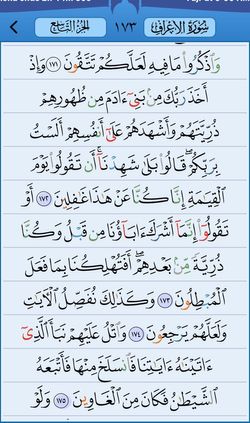 سُورَةُ الأَعْرَافِ ١٧٣ الجُزْءُ التَّاسِعُ
وَٱذۡكُرُواْ مَا فِيهِ لَعَلَّكُمۡ تَتَّقُونَ ١٧١ وَإِذۡ
أَخَذَ رَبُّكَ مِنۢ بَنِيٓ ءَادَمَ مِن ظُهُورِهِمۡ
ذُرِّيَّتَهُمۡ وَأَشۡهَدَهُمۡ عَلَىٰٓ أَنفُسِهِمۡ أَلَسۡتُ
بِرَبِّكُمۡۖ قَالُواْ بَلَىٰ شَهِدۡنَآۚ أَن تَقُولُواْ يَوۡمَ
ٱلۡقِيَٰمَةِ إِنَّا كُنَّا عَنۡ هَٰذَا غَٰفِلِينَ ١٧٢ أَوۡ
تَقُولُوٓاْ إِنَّمَآ أَشۡرَكَ ءَابَآؤُنَا مِن قَبۡلُ وَكُنَّا
ذُرِّيَّةٗ مِّنۢ بَعۡدِهِمۡۖ أَفَتُهۡلِكُنَا بِمَا فَعَلَ
ٱلۡمُبۡطِلُونَ ١٧٣ وَكَذَٰلِكَ نُفَصِّلُ ٱلۡأٓيَٰتِ
وَلَعَلَّهُمۡ يَرۡجِعُونَ ١٧٤ وَٱتۡلُ عَلَيۡهِمۡ نَبَأَ ٱلَّذِيٓ
ءَاتَيۡنَٰهُ ءَايَٰتِنَا فَٱنسَلَخَ مِنۡهَا فَأَتۡبَعَهُ
ٱلشَّيۡطَٰنُ فَكَانَ مِنَ ٱلۡغَاوِينَ ١٧٥ وَلَوۡ